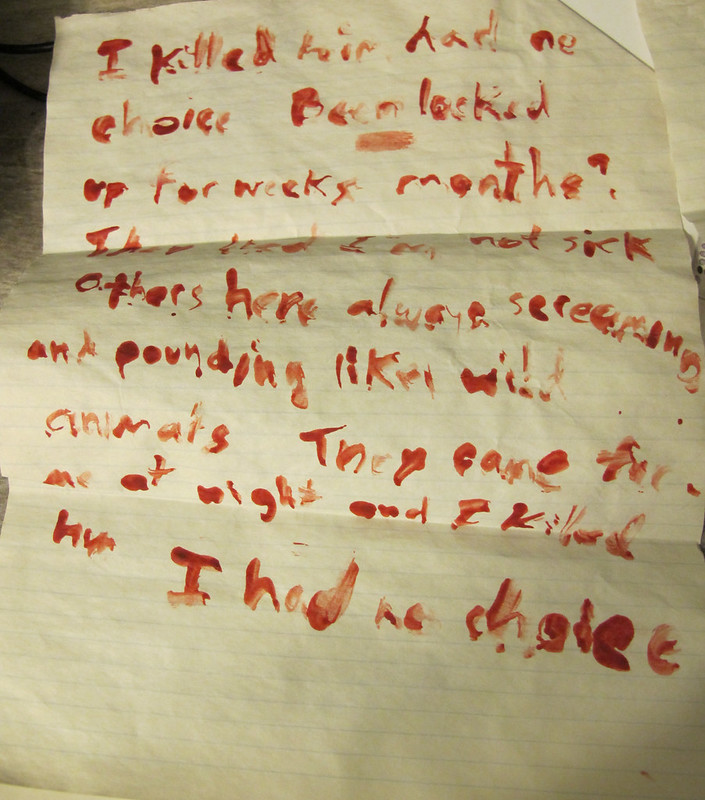 I killed him had no
choice Been locked
up for weeks months?
I'm not sick
others here always screaming
and pounding like wild
animals They came for
me at night and I killed
him I had no choice